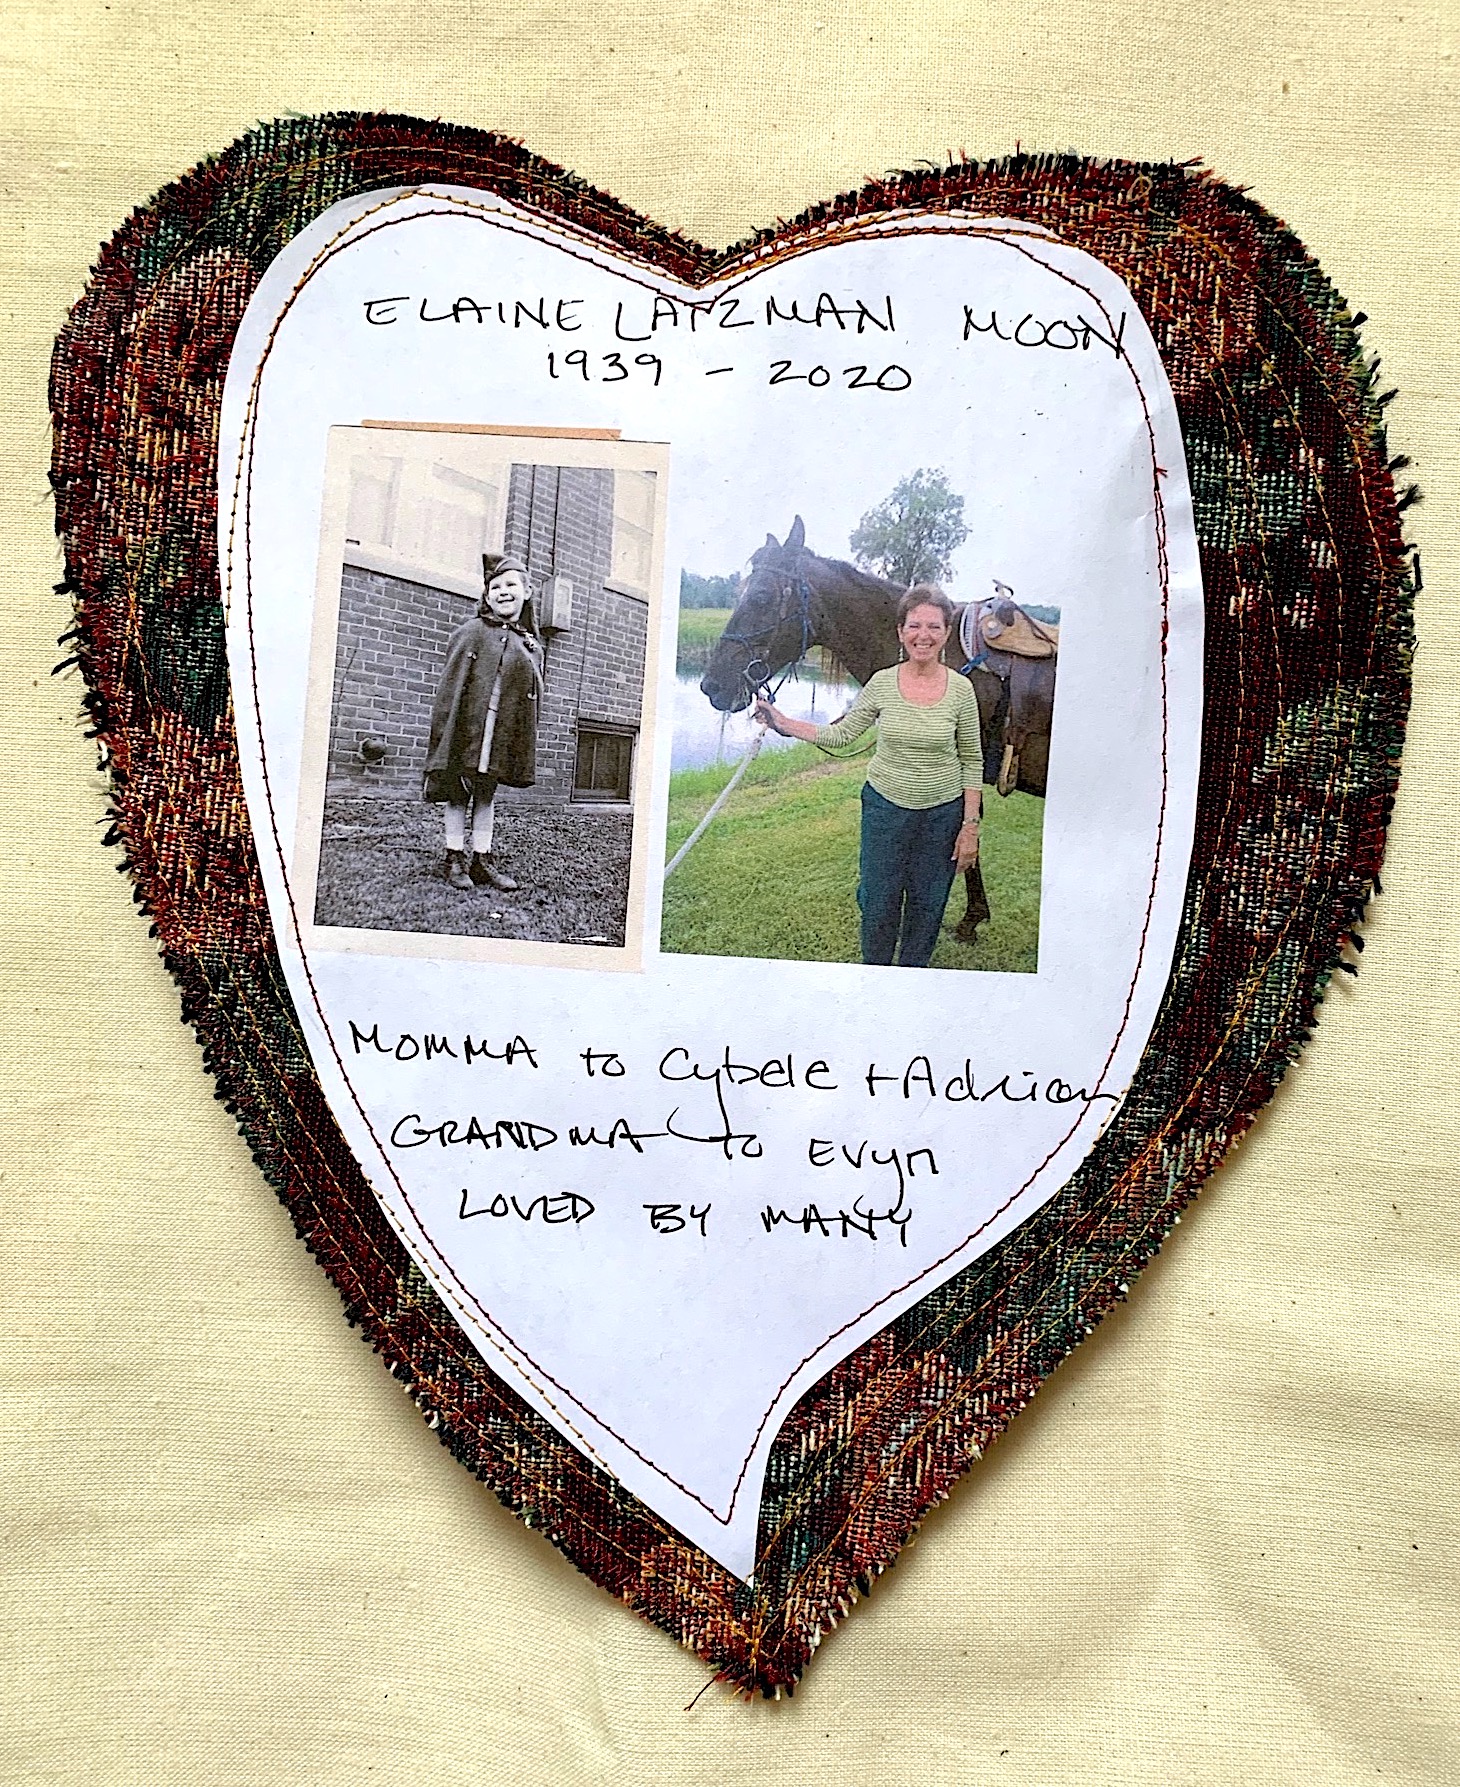 ELAINE LATZMAN MOON
1939 - 2020
MOMMA to Cybele + Adrian
GRANDMA to Evyn
LOVED BY MANY